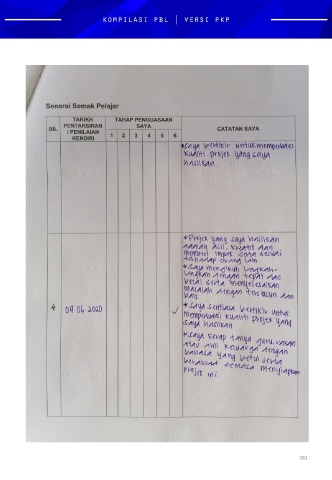 KOMPILASI PBL | VERSI PKP
Senarai Semak Pelajar
BIL
TARIKH
PENTAKSIRAN
/ PENILAIAN
KENDIRI
TAHAP PENGUASAAN
SAYA
1 2 3 4 5 6
CATATAN SAYA
* Saya berfikir untuk memperbaiki
kualiti projek yang saya
hasilkan.
4
09.06.2020
✓
* Projek yang saya hasilkan
adalah asli, kreatif dan
memberi impak serta sesuai
terhadap orang lain.
* Saya mengikuti langkah-
langkah dengan tepat dan
betul serta menyelesaikan
masalah dengan tersusun dan
baik
* Saya sentiasa berfikir untuk
memperbaiki kualiti projek yang
saya hasilkan
* Saya kerap tanya guru, rakan
atau ahli keluarga dengan
bahasa yang betul serta
semasa menyiapkan
projek ini.
281